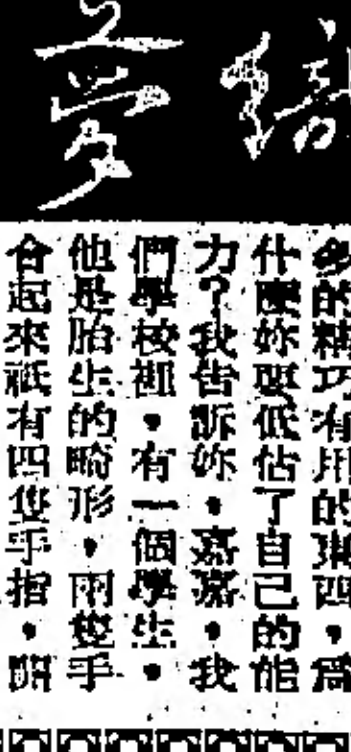 綺夢
多的精巧有用的東西，為
什麼妳要低估了自己的能
力？我告訴妳，嘉嘉，我
們學校裡，有一個學生，
他是胎生的畸形，兩隻手
合起來祇有四隻手指，開